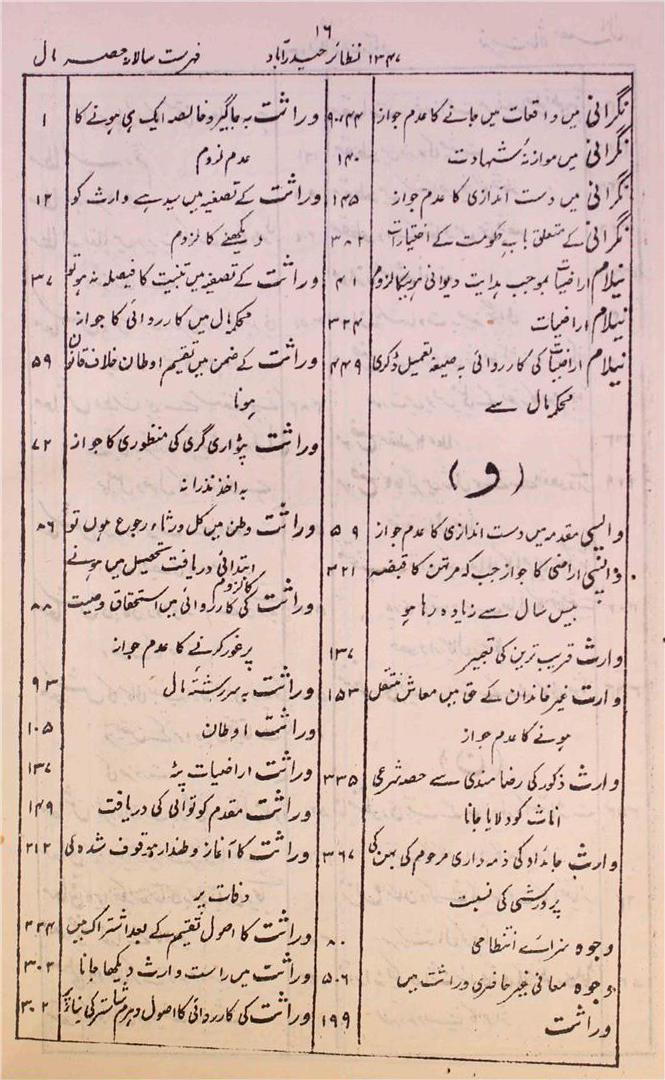 ۱۶
۱۳۴۷ نظائر حیدرآباد
فہرست سالانہ حصہ مال
نگرانی میں واقعات میں جانے کا عدم جواز ۹۰،۴۴
نگرانی میں موازنۂ شہادت ۱۴۰
نگرانی میں دست اندازی کا عدم جواز ۱۴۵
نگرانی کے متعلق باب حکومت کے اختیارات ۳۸۲
نیلام اراضیات بموجب ہدایت دیوانی ہونیکا لزوم ۴۱
نیلام اراضیات ۳۲۴
نیلام اراضیات کی کارروائی بہ صیغہ تعمیل ڈگری ۴۴۹
محکمہ مال سے
(و)
واپسی مقدمہ میں دست اندازی کا عدم جواز ۵۹
واپسی اراضی کا جواز جب کہ مرتہن کا قبضہ ۳۲۱
بیس سال سے زیادہ رہا ہو
وارث قریب ترین کی تعبیر ۱۳۷
وارث غیر خاندان کے حق میں معاش منتقل ۱۵۳
ہونے کا عدم جواز
وارث ذکور کی رضامندی سے حصہ شرعی ۳۳۵
اناث کو دلایا جانا
وارث جائداد کی ذمہ داری مرحوم کی بہن کی ۳۶۷
پرورشی کی نسبت
وجوہ سزائے انتظامی ۸۰
وجوہ معافی غیر حاضری وراثت میں ۵۰۶
وراثت ۱۹۹
وراثت بہ جاگیر و خالصہ ایک ہی ہونے کا ۱
عدم لزوم
وراثت کے تصفیہ میں سیدہے وارث کو ۱۲
دیکھنے کا لزوم
وراثت کے تصفیہ میں تبنیت کا فیصلہ نہ ہو تو ۳۷
محکمہ مال میں کارروائی کا جواز
وراثت کے ضمن میں تقسیم اوطان خلاف قانون ۵۹
ہونا
وراثت پٹواری گری کی منظوری کا جواز ۷۲
بہ اخذ نذرانہ
وراثت وطن میں کل ورثاء رجوع ہوں تو ۸۶
ابتدائی دریافت تحصیل میں ہونے
کا لزوم
وراثت کی کارروائی میں استحقاق وصیت ۸۸
پر غور کرنے کا عدم جواز
وراثت بہ سررشتۂ مال ۹۳
وراثت اوطان ۱۰۵
وراثت اراضیات پٹہ ۱۳۷
وراثت مقدم کوتوالی کی دریافت ۱۴۹
وراثت کا آغاز وطندار موقوف شدہ کی ۲۱۲
وفات پر
وراثت کا اصول تقسیم کے بعد اشتراک میں ۲۲۴
وراثت میں راست وارث دیکھا جانا ۳۰۲
وراثت کی کارروائی کا اصول دہرم شاستر کی بنا پر ۳۰۲